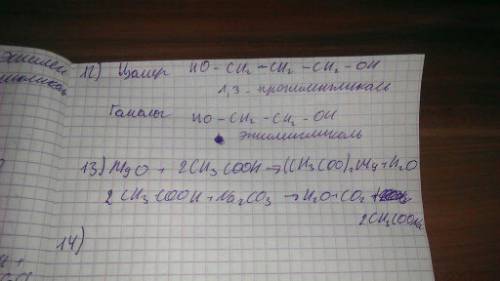 этилен
12) Изомер HO-CH₂-CH₂-CH₂-OH
1,3-пропиленгликоль
Гомолог HO-CH₂-CH₂-OH
этиленгликоль
13) MgO + 2CH₃COOH → (CH₃COO)₂Mg + H₂O
2CH₃COOH + Na₂CO₃ → H₂O + CO₂ +
2CH₃COONa
14)